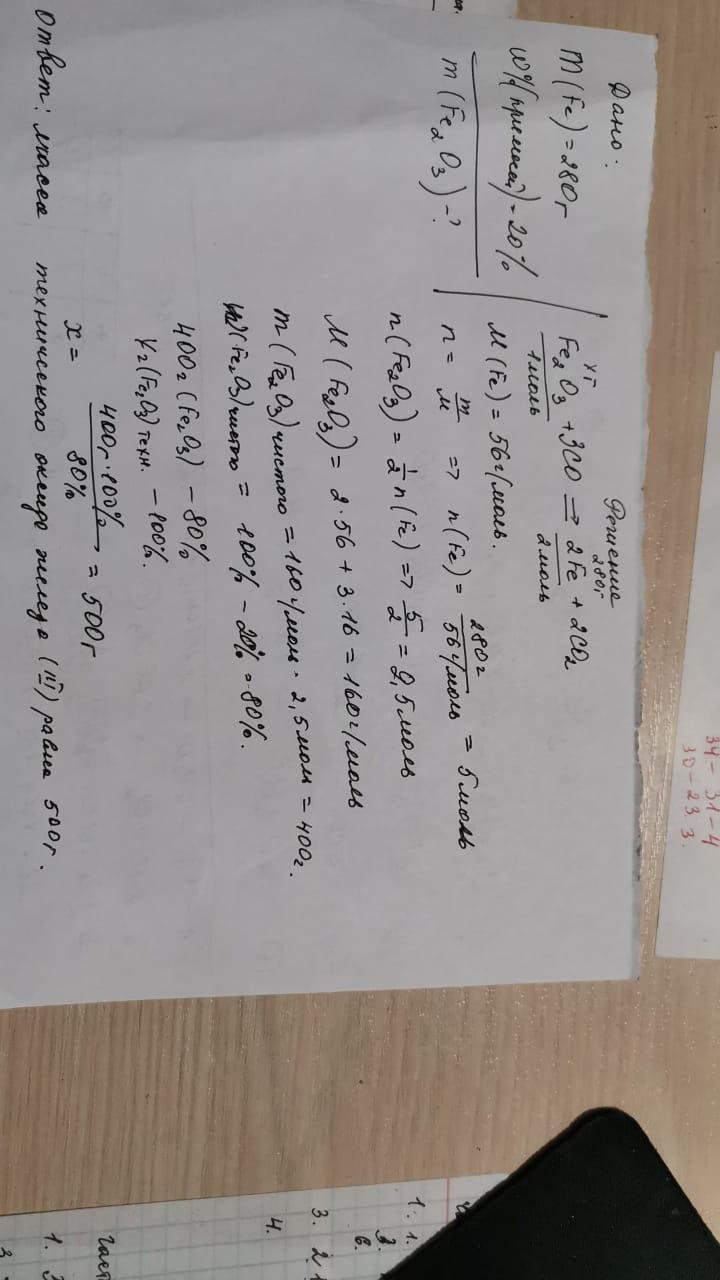 Дано:
m(Fe) = 280г
w%(примесей) = 20%
m(Fe2O3) - ?
Решение
Xг 280г
Fe2O3 + 3CO => 2Fe + 2CO2
1моль 2моль
M(Fe) = 56г/моль.
n = m/M => n(Fe) = 280г/56г/моль = 5моль
n(Fe2O3) = 1/2 n(Fe) => 5/2 = 2,5моль
M(Fe2O3) = 2·56 + 3·16 = 160г/моль
m(Fe2O3)чистого = 160г/моль · 2,5моль = 400г.
(Fe2O3)чистого = 100% - 20% = 80%.
400г (Fe2O3) - 80%
Xг (Fe2O3)техн. - 100%.
x = 400г·100%/80% = 500г
Ответ: масса технического оксида железа (III) равна 500г.
34 - 31 - 4
30 - 23. 3.
1. 1.
3.
6.
3. 2.
4.
Част
1. 3
3